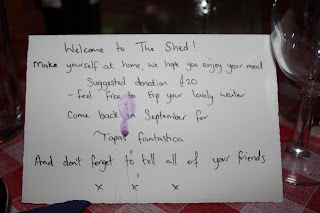 Welcome to The Shed!
Make yourself at home, we hope you enjoy your meal
Suggested donation £20
- feel free to tip your lovely waiter
Come back in September for
Tapas fantastica
And don't forget to tell all of your friends
x x x